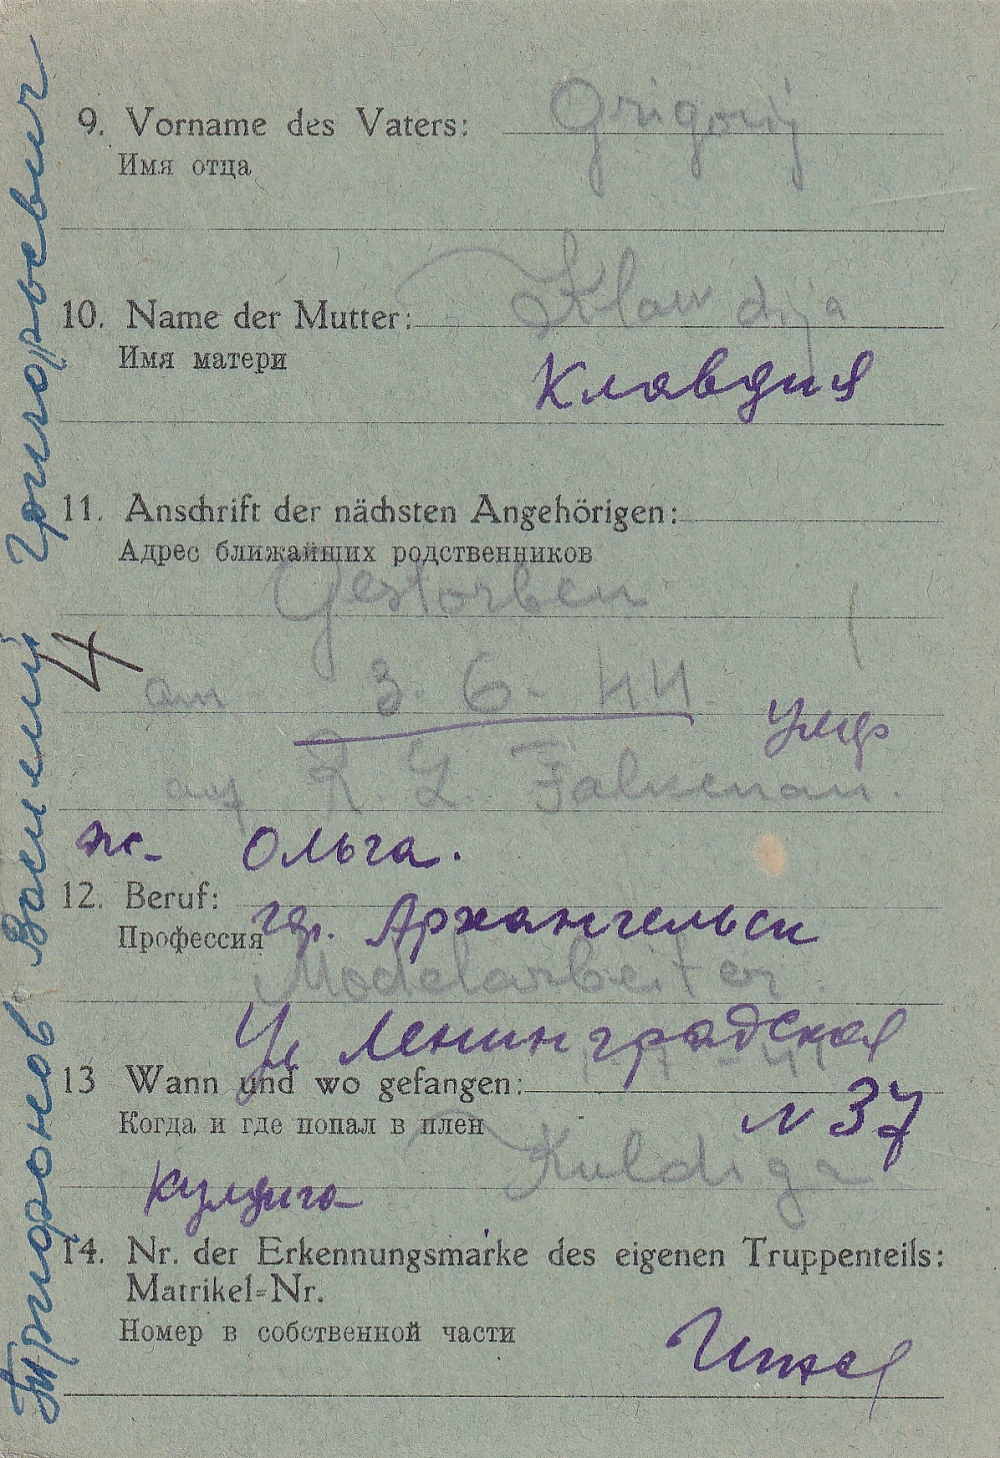 9. Vorname des Vaters: Grigorij
Имя отца
10. Name der Mutter: Klawdija
Имя матери
Клавдия
11. Anschrift der nächsten Angehörigen:
Адрес ближайших родственников
Gestorben
4
am 3. 6. 44.
умер
auf R. L. Falkenau.
ж. Ольга.
12. Beruf:
Профессия
гор. Архангельск
Modelarbeiter.
Ул Ленинградская
13 Wann und wo gefangen:
Когда и где попал в плен
N 37
Kuldiga
Кулдига
14. Nr. der Erkennungsmarke des eigenen Truppenteils:
Matrikel=Nr.
Номер в собственной части
Василий Григорьевич